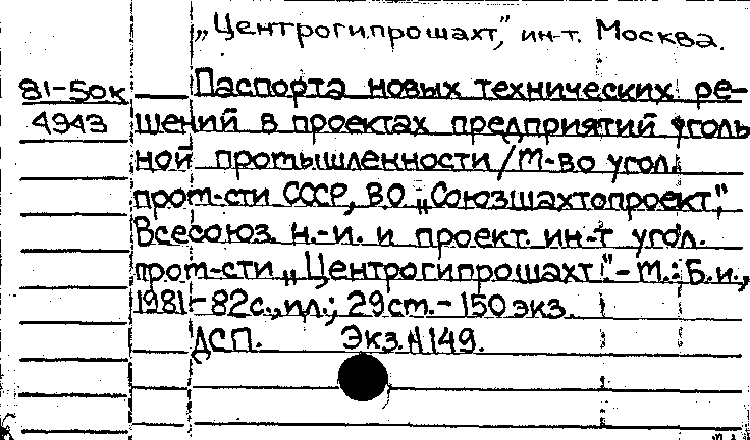 „Центрогипрошахт", ин-т. Москва.
81-50к Паспорта новых технических ре-
4943 шений в проектах предприятий уголь
ной промышленности/М-во угол.
пром-сти СССР, ВО „Союзшахтопроект",
Всесоюз. н.-и. и проект. ин-т угол.
пром-сти „Центрогипрошахт". - М.: Б.и.,
1981 - 82с., ил.; 29см. - 150 экз.
ДСП. Экз.N149.